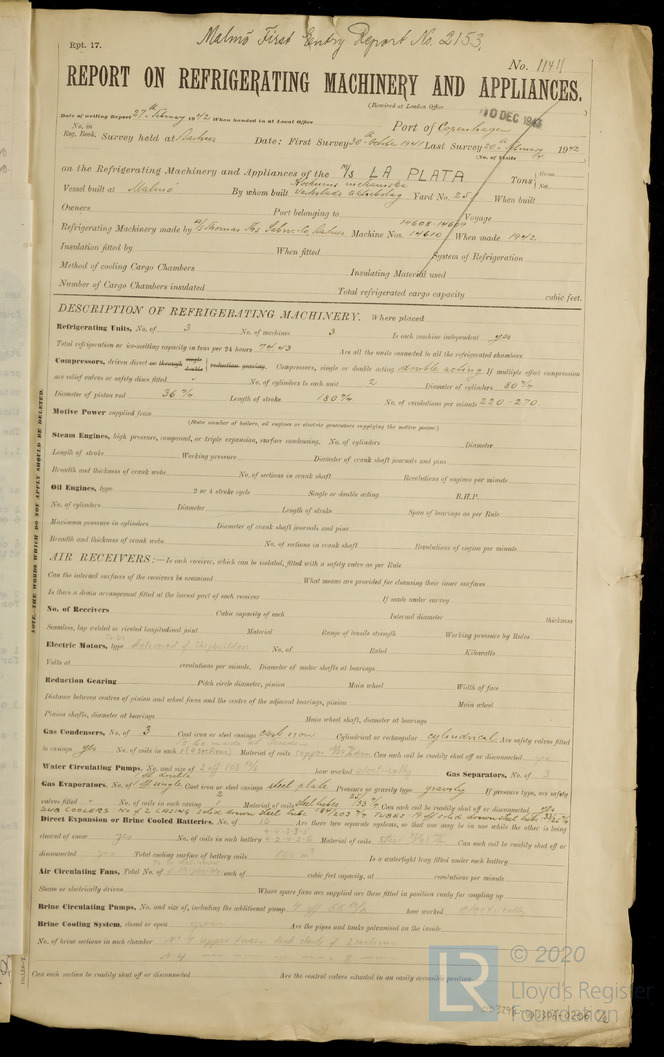 Rpt. 17.
Malmö First Entry Report No. 2153.
No. 11411
REPORT ON REFRIGERATING MACHINERY AND APPLIANCES.
(Received at London Office
10 DEC 1943
Date of writing Report 27th February 1942 When handed in at Local Office Port of Copenhagen
No. in Reg. Book. Survey held at Date: First Survey 30th October 1941 Last Survey 20th February 1942
(No. of Visits
on the Refrigerating Machinery and Appliances of the M/S LA PLATA Tons Gross Net
Vessel built at Malmö By whom built Kockums mekaniska Verkstads aktiebolag Yard No. 25 When built
Owners Port belonging to Voyage
Refrigerating Machinery made by Thomas Machine Nos. 14608-14609 14610 When made 1942
Insulation fitted by When fitted System of Refrigeration
Method of cooling Cargo Chambers Insulating Material used
Number of Cargo Chambers insulated Total refrigerated cargo capacity cubic feet.
DESCRIPTION OF REFRIGERATING MACHINERY. Where placed
Refrigerating Units, No. of 3 No. of machines 3 Is each machine independent yes
Total refrigeration or ice-melting capacity in tons per 24 hours 74.43 Are all the units connected to all the refrigerated chambers
Compressors, driven direct or through single double reduction gearing. Compressors, single or double acting double acting If multiple effect compression
are relief valves or safety discs fitted No. of cylinders to each unit 2 Diameter of cylinders 80 m/m
Diameter of piston rod 36 m/m Length of stroke 180 m/m No. of revolutions per minute 220-270
Motive Power supplied from
(State number of boilers, oil engines or electric generators supplying the motive power.)
Steam Engines, high pressure, compound, or triple expansion, surface condensing. No. of cylinders Diameter
Length of stroke Working pressure Diameter of crank shaft journals and pins
Breadth and thickness of crank webs No. of sections in crank shaft Revolutions of engines per minute
Oil Engines, type 2 or 4 stroke cycle Single or double acting B.H.P.
No. of cylinders Diameter Length of stroke Span of bearings as per Rule
Maximum pressure in cylinders Diameter of crank shaft journals and pins
Breadth and thickness of crank webs No. of sections in crank shaft Revolutions of engine per minute
AIR RECEIVERS:—Is each receiver, which can be isolated, fitted with a safety valve as per Rule
Can the internal surfaces of the receivers be examined What means are provided for cleansing their inner surfaces
Is there a drain arrangement fitted at the lowest part of each receiver If made under survey
No. of Receivers Cubic capacity of each Internal diameter thickness
Seamless, lap welded or riveted longitudinal joint Material Range of tensile strength Working pressure by Rules
Electric Motors, type delivered by Shipbuilders No. of Rated Kilowatts
Volts at revolutions per minute. Diameter of motor shafts at bearings
Reduction Gearing Pitch circle diameter, pinion Main wheel Width of face
Distance between centres of pinion and wheel faces and the centre of the adjacent bearings, pinion Main wheel
Pinion shafts, diameter at bearings Main wheel shaft, diameter at bearings
Gas Condensers, No. of 3 Cast iron or steel casings cast iron Cylindrical or rectangular cylindrical Are safety valves fitted
to casings yes No. of coils in each Material of coils copper Can each coil be readily shut off or disconnected yes
Water Circulating Pumps, No. and size of 2 off 105 m/m how worked electrically Gas Separators, No. of 3
Gas Evaporators, No. of Cast iron or steel casings steel plate Pressure or gravity type gravity If pressure type, are safety
valves fitted No. of coils in each casing Material of coils steel tubes Can each coil be readily shut off or disconnected yes
SUB COOLERS
Direct Expansion or Brine Cooled Batteries, No. of 16 Are there two separate systems, so that one may be in use while the other is being
cleared of snow yes No. of coils in each battery Material of coils Steel Can each coil be readily shut off or
disconnected yes Total cooling surface of battery coils Is a watertight tray fitted under each battery
Air Circulating Fans, Total No. of each of cubic feet capacity, at revolutions per minute
Steam or electrically driven Where spare fans are supplied are these fitted in position ready for coupling up
Brine Circulating Pumps, No. and size of, including the additional pump 4 off how worked electrically
Brine Cooling System, closed or open open Are the pipes and tanks galvanised on the inside
No. of brine sections in each chamber
Can each section be readily shut off or disconnected Are the control valves situated in an easily accessible position
NOTE.—THE WORDS WHICH DO NOT APPLY SHOULD BE DELETED.
LR
© 2020
Lloyd's Register
Foundation